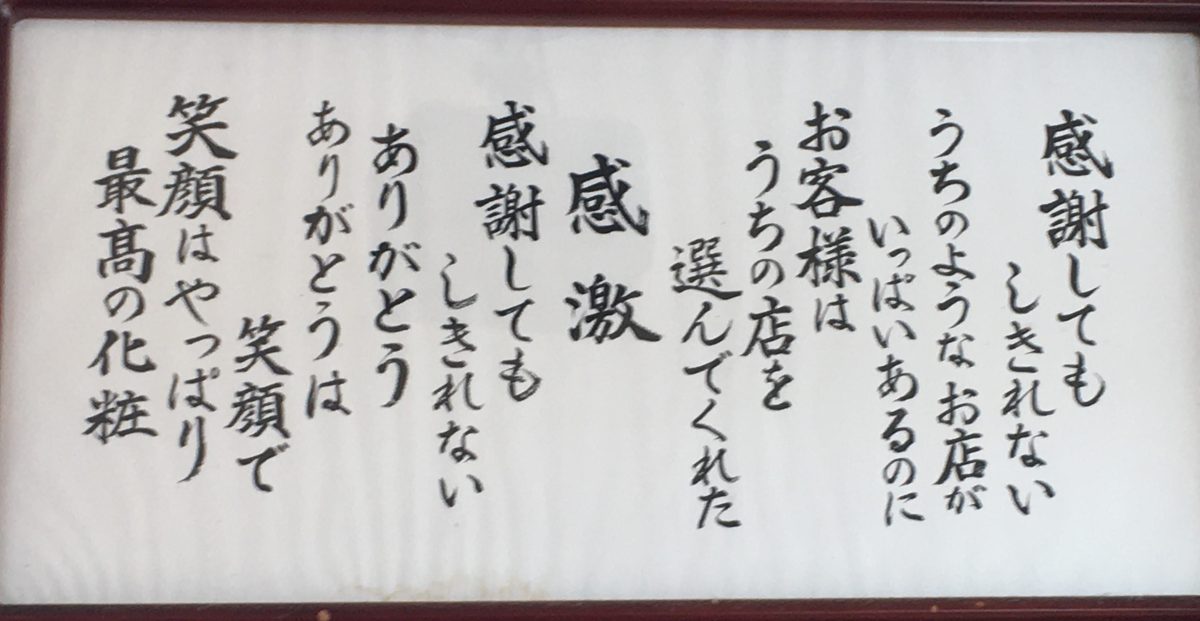 感謝しても
しきれない
うちのようなお店が
いっぱいあるのに
お客様は
うちの店を
選んでくれた
感激
感謝しても
しきれない
ありがとう
ありがとうは
笑顔で
笑顔はやっぱり
最髙の化粧